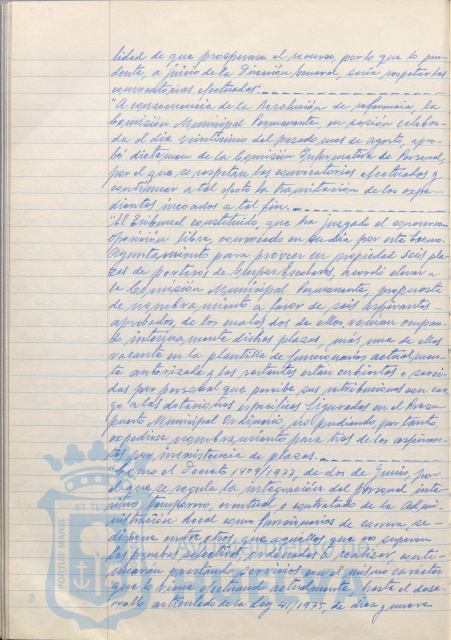 lidad de que prosperase el recurso, por lo que lo pru-
dente, a juicio de la Dirección General, sería respetar las
convocatorias efectuadas".
"A consecuencia de la Resolución de referencia, la
Comisión Municipal Permanente en sesión celebra-
da el día veintiuno del pasado mes de agosto, apro-
bó dictamen de la Comisión Informativa de Personal,
por el que se respetan las convocatorias efectuadas y
continuar a tal efecto la tramitación de los expe-
dientes incoados a tal fin.
"El Tribunal constituido, que ha juzgado el concurso
oposición libre, convocado en su día por este Excmo.
Ayuntamiento para proveer en propiedad seis pla-
zas de porteros de Grupos Escolares, acordó elevar a
la Comisión Municipal Permanente, propuesta
de nombramiento a favor de seis aspirantes
aprobados, de los cuales dos de ellos venían ocupan-
do interinamente dichas plazas, más una de ellas
vacante en la plantilla de funcionarios actualmen-
te autorizada y las restantes están cubiertas o servi-
das por personal que percibe sus retribuciones con car-
go a las dotaciones específicas figuradas en el Presu-
puesto Municipal Ordinario, no pudiendo, por tanto,
expedirse nombramiento para tres de los aspiran-
tes por inexistencia de plazas.
"Como el Decreto 1409/1977, de dos de Junio, por
el que se regula la integración del personal inte-
rino, temporero, eventual o contratado de la Admi-
nistración Local como funcionarios de carrera, se
dispone entre otros, que aquellos que no superen
las pruebas selectivas ordenadas a realizar, conti-
nuaran prestando servicios con el mismo carácter
que lo viene efectuando actualmente, hasta el desa-
rrollo articulado de la Ley 41/1975, de diez y nueve
PORTUS MARIS
ET TERRAE